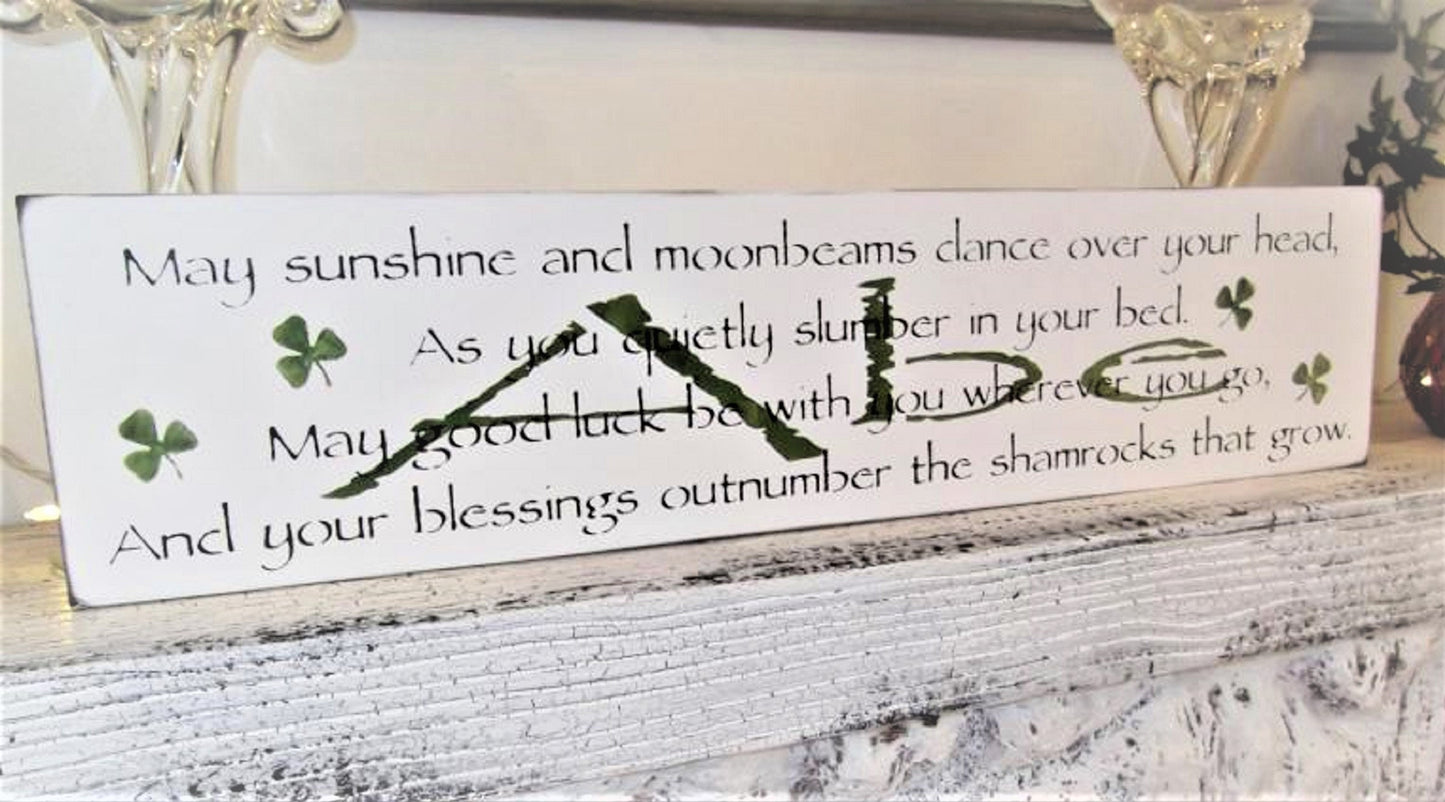 May sunshine and moonbeams dance over your head,
As you quietly slumber in your bed.
May good luck be with you wherever you go,
And your blessings outnumber the shamrocks that grow.
Abc